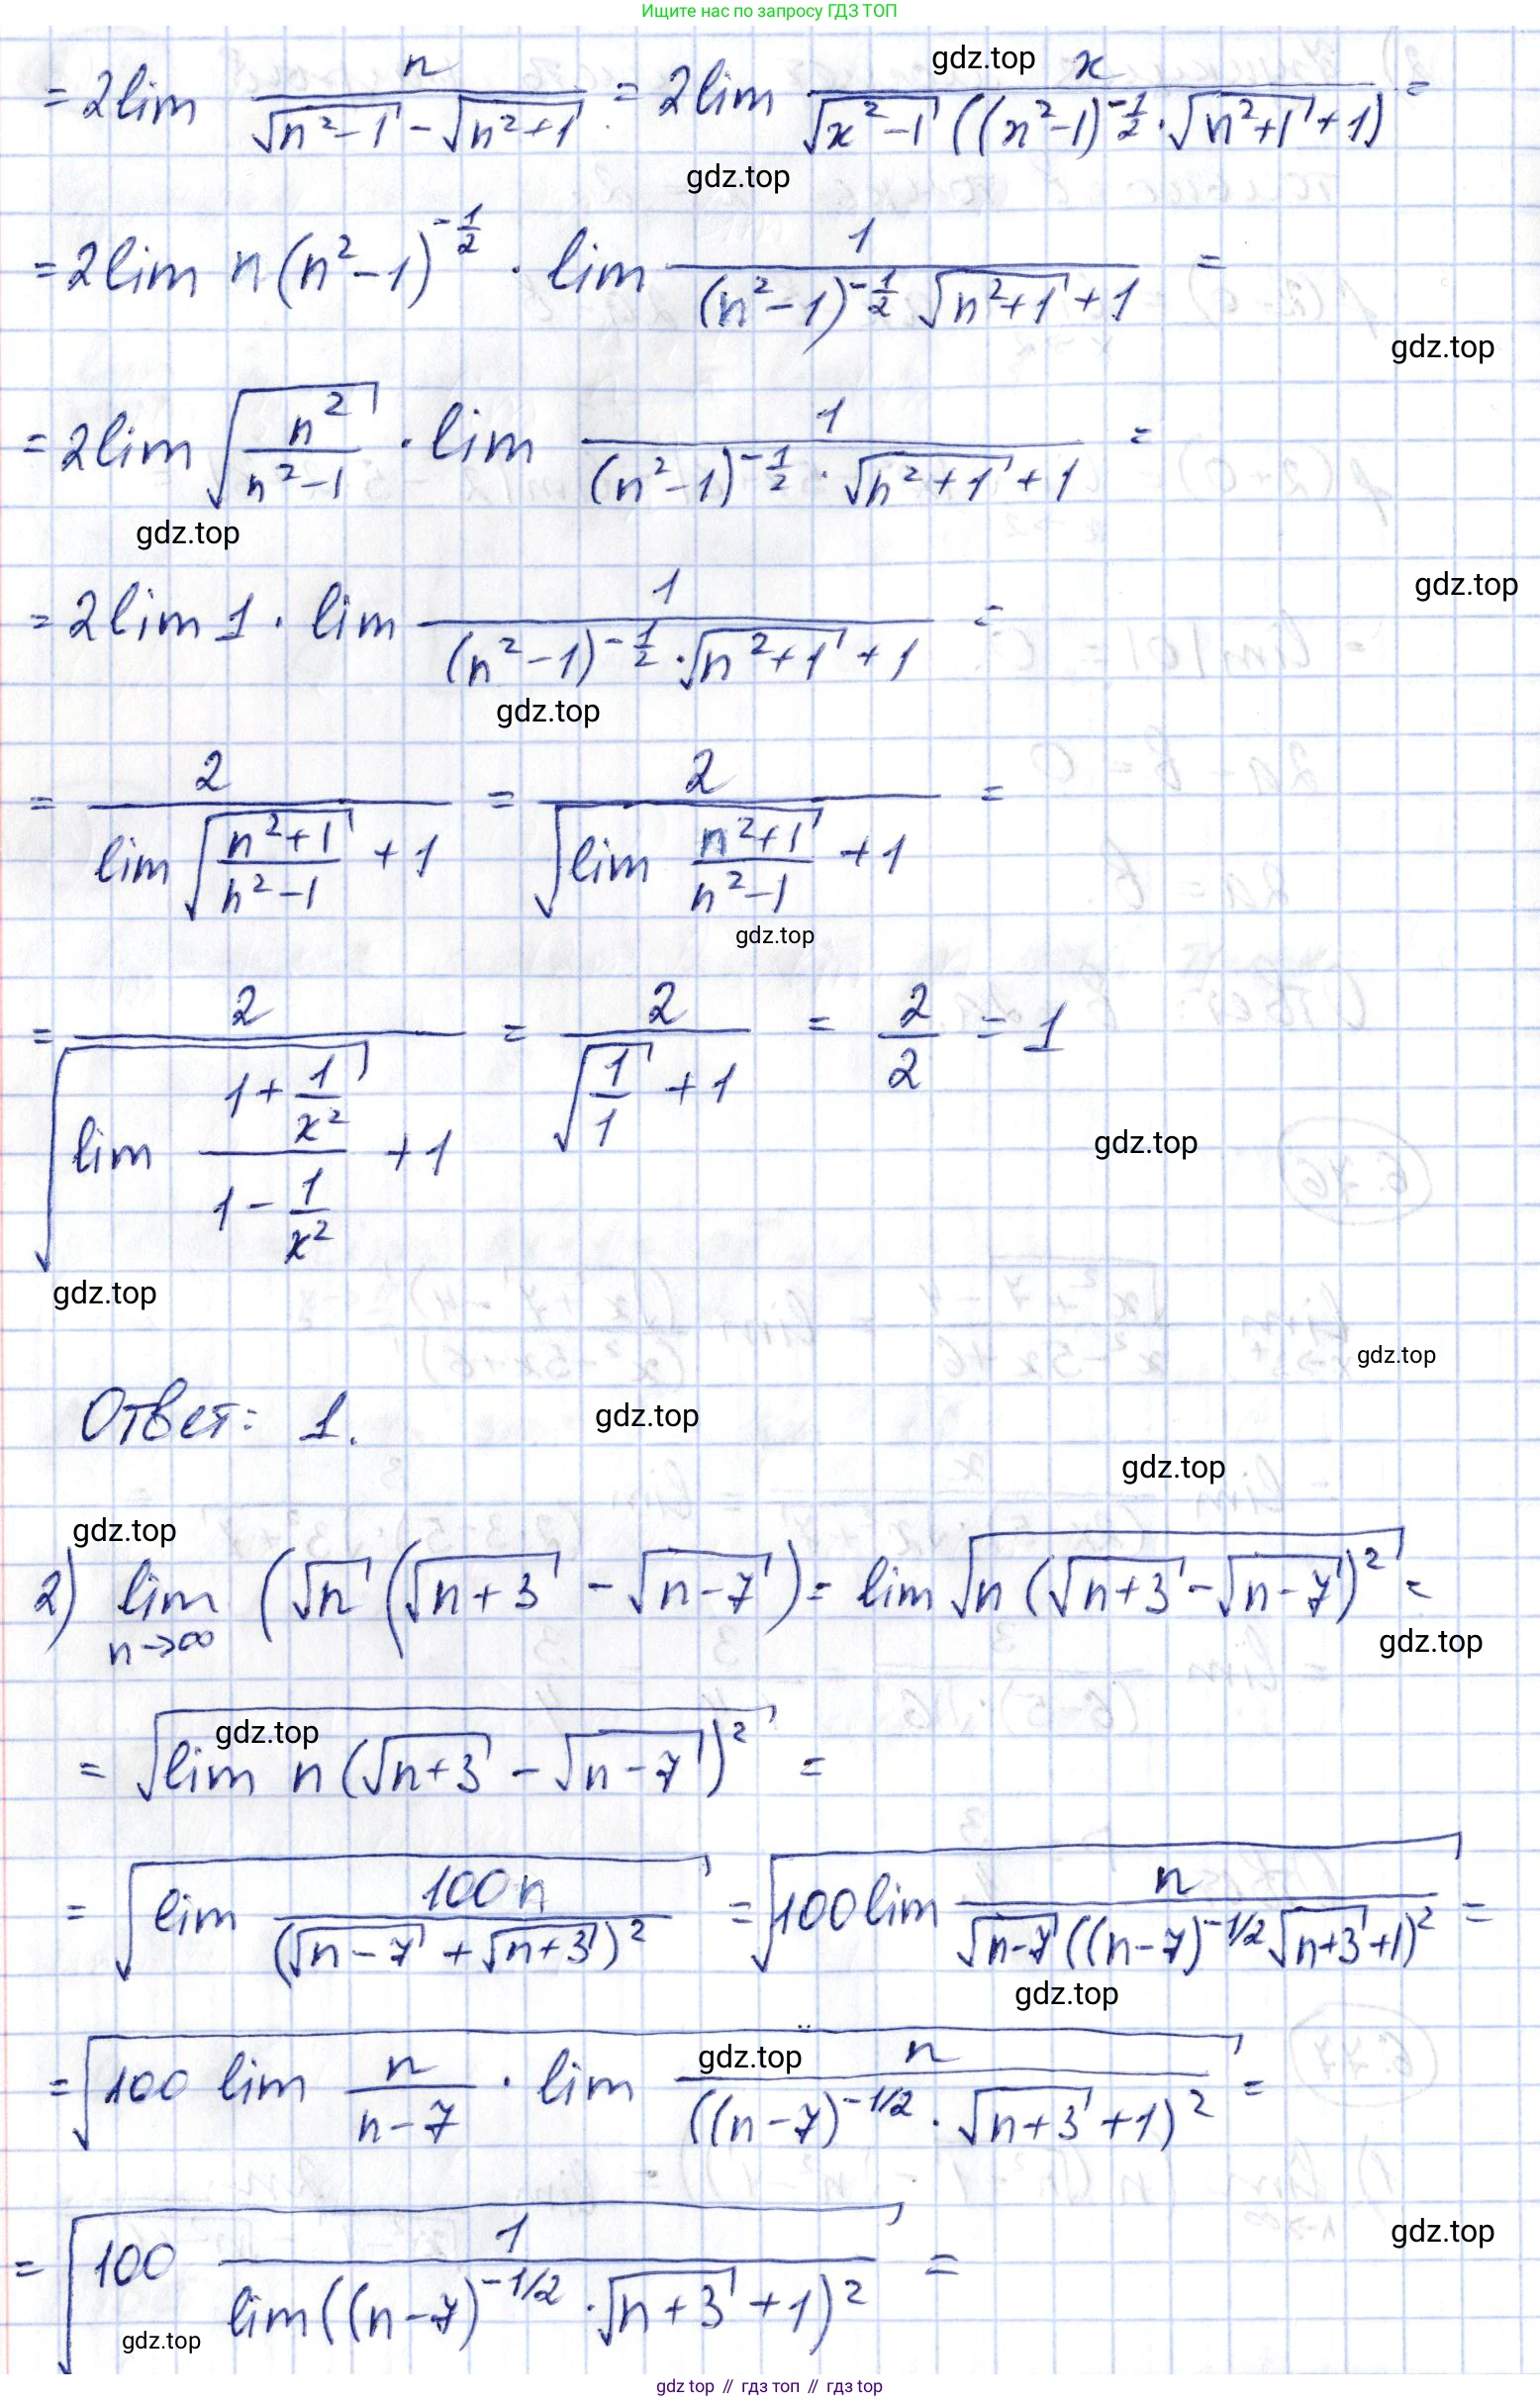 Ищите нас по запросу ГДЗ ТОП
gdz.top
= 2lim n / (√(n²-1) - √(n²+1)) = 2lim x / (√(x²-1) ((n²-1)^(-1/2) · √(n²+1) + 1)) =
gdz.top
= 2lim n(n²-1)^(-1/2) · lim 1 / ((n²-1)^(-1/2) √(n²+1) + 1) =
gdz.top
= 2lim √(n² / (n²-1)) · lim 1 / ((n²-1)^(-1/2) · √(n²+1) + 1) =
gdz.top
gdz.top
= 2lim 1 · lim 1 / ((n²-1)^(-1/2) · √(n²+1) + 1) =
gdz.top
= 2 / (lim √((n²+1) / (n²-1)) + 1) = 2 / (√(lim (n²+1) / (n²-1)) + 1) =
gdz.top
= 2 / (√(lim (1 + 1/x²) / (1 - 1/x²)) + 1) = 2 / (√(1/1) + 1) = 2/2 = 1
gdz.top
gdz.top
gdz.top
Ответ: 1.
gdz.top
gdz.top
gdz.top
2) lim n→∞ (√n (√(n+3) - √(n-7)) = lim √(n (√(n+3) - √(n-7))²) =
gdz.top
gdz.top
= √(lim n (√(n+3) - √(n-7))²) =
= √(lim 100n / (√(n-7) + √(n+3))²) = √(100 lim n / (√(n-7) ((n-7)^(-1/2) √(n+3) + 1)²)) =
gdz.top
gdz.top
= √(100 lim n / (n-7) · lim n / ((n-7)^(-1/2) · √(n+3) + 1)²) =
gdz.top
= √(100 1 / lim((n-7)^(-1/2) · √(n+3) + 1)²) =
gdz.top
gdz top // гдз топ // гдз top